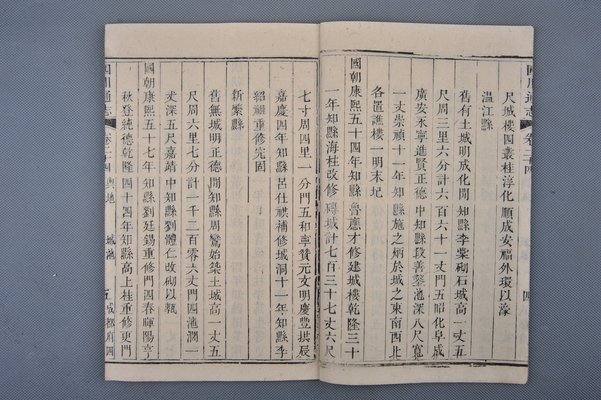 尺城楼四叢桂淳化順成安福外環以濠
溫江縣
舊有土城明成化間知縣李棠砌石城高一丈五
尺周三里六分計六百六十一丈門五昭化阜成
廣安太寧進賢正德中知縣段善墓池深八尺寬
一丈崇禎十一年知縣施之炳於城之東南西北
各置譙樓一明末圮
國朝康熙五十四年知縣魯應才修建城樓乾隆三十
一年知縣海柱改修磚城計七百三十七丈六尺
七寸周四里一分門五和享贊元文明慶豐拱辰
嘉慶四年知縣呂仕祺補修城洞十一年知縣李
紹祖重修完固
新繁縣
舊無城明正德間知縣周鸑始築土城高一丈五
尺周六里七分計一千二百零六丈門四池濶一
丈深五尺嘉靖中知縣劉體仁改砌以甎
國朝康熙五十七年知縣劉廷錫重修門四春暉陽亨
秋登純德乾隆四十四年知縣高上桂重修更門
四川通志 卷二十四 輿地 城池 五 成都府四